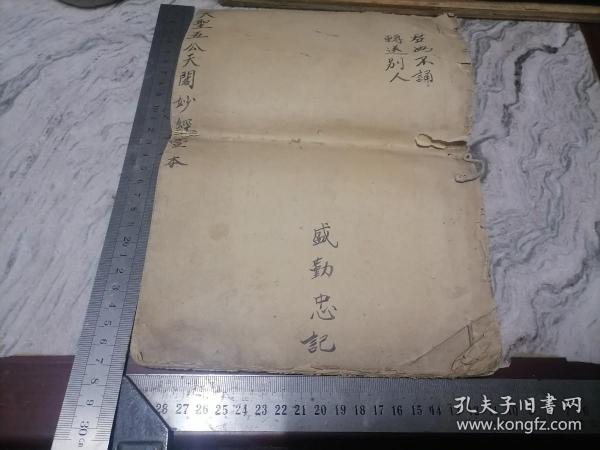 大聖五公天閣妙經壹本
若如不誦
轉送別人
盛勤忠記
30cm
28 27 26 25 24 23 22 21 20 19 18 17 16 15 14
孔夫子旧書网
www.kongfz.com